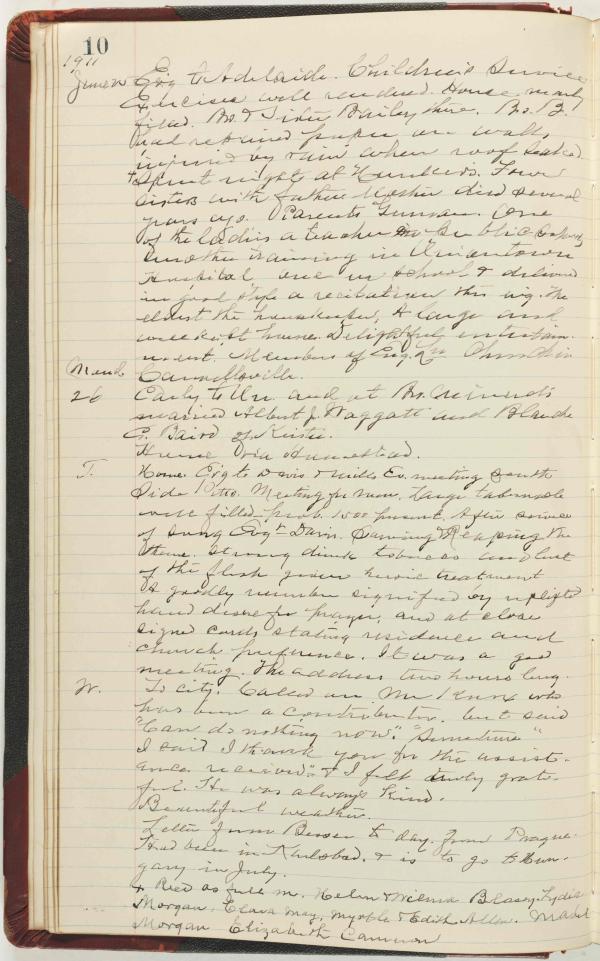 10
1911
June Evg to Adelaide. Children's Service
Exercises well rendered. House nearly
filled. Bro. & Sister Bailey there. Bro. B.
had repaired paper on walls
injured by rain when roof leaked.
+ Spent night at Four
sisters with father. Mother died several
years ago. Parents German. One
of the ladies a teacher in Public
Another training in Uniontown
Hospital, one in school & delivered
in good style a recitation this evg. The
eldest the housekeeper. A large and
house. Delightful entertain-
ment. Members of Church in
Connellsville.
Mond.
26 Early to Un. and at Bro.
married Albert J. Waggatt and Blanche
G. Baird of
Home via Homestead.
T. Home. Evg to Davis & Mills Ev. meeting South
Side Pitts. Meeting for men. Large tabernacle
well filled prob. 1500 present. After service
of song Evgt Davis. Sowing & Reaping the
theme. Strong drink tobacco and lust
of the flesh given heroic treatment
A goodly number signified by uplifted
hand desire for prayer, and at close
signed cards stating residence and
church preference. It was a good
meeting. The address two hours long.
W. To city. Called on Mr Knox who
has been a contributor, but said
"Can do nothing now." "Sometime"
I said I thank you for the assist-
ance received" & I felt truly grate-
ful. He was always kind.
Beautiful weather.
Letter from to day. From Prague.
Had been in Karlsbad. & is to go to Hun-
gary in July.
+ Recd as full m. Helen & Wilma Lydia
Morgan. Clara May, Myrtle & Edith Allen. Mabel
Morgan Elizabeth Cameron